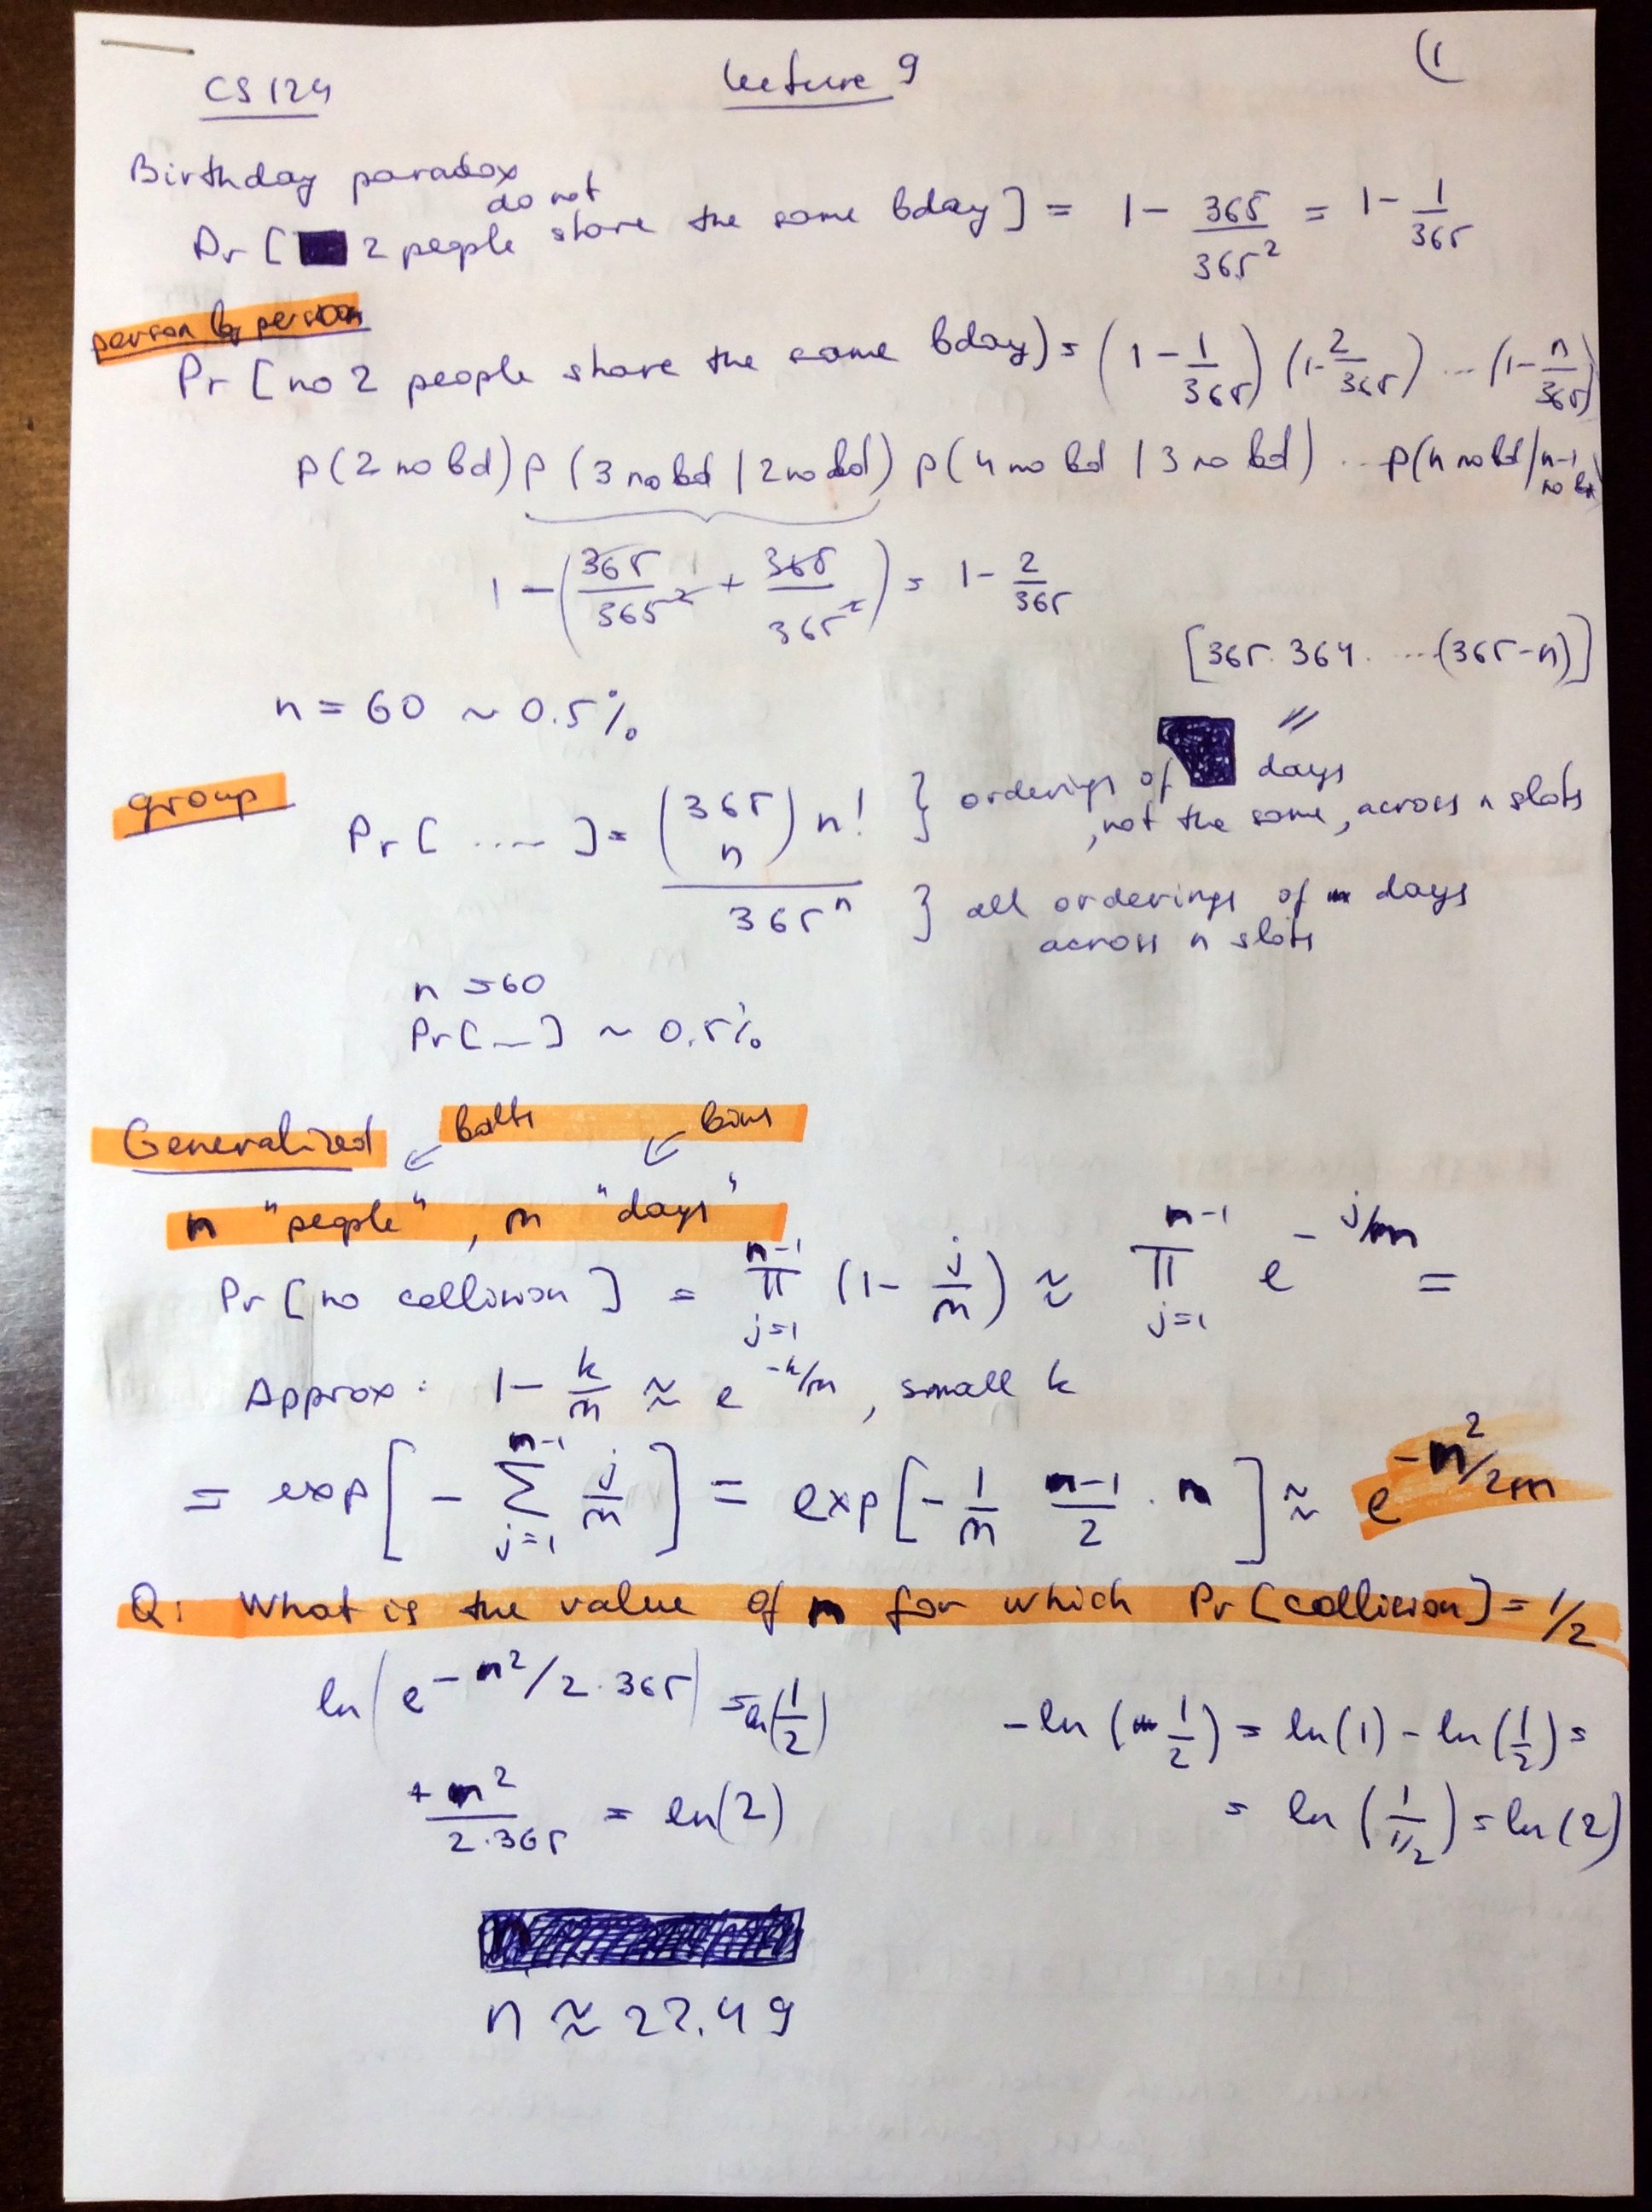 CS 124 Lecture 9 (1
Birthday paradox
do not
Pr [ 2 people share the same bday ] = 1 - 365/365² = 1 - 1/365
person by person
Pr [ no 2 people share the same bday) = (1 - 1/365) (1 - 2/365) ... (1 - n/365)
p(2 no bd) p (3 no bd | 2 no bd) p(4 no bd | 3 no bd) ... p(n no bd | n-1 no bd)
1 - (365/365² + 365/365²) = 1 - 2/365
[365 · 364 · ... (365-n)]
n = 60 ~ 0.5%
group
Pr [ .... ] = (365 n) n! } orderings of days
, not the same, across n slots
365ⁿ } all orderings of days
across n slots
n = 60
Pr [ ... ] ~ 0.5%
Generalized balls bins
n "people", m "days"
Pr [ no collision ] = ∏_{j=1}^{n-1} (1 - j/m) ≈ ∏_{j=1}^{n-1} e^{-j/m} =
Approx: 1 - k/m ≈ e^{-k/m}, small k
= exp [ - ∑_{j=1}^{n-1} j/m ] = exp [ - 1/m (n-1)/2 · n ] ≈ e^{-n²/2m}
Q: What is the value of n for which Pr [collision] = 1/2
ln( e^{-n²/2·365} ) = ln(1/2) -ln (1/2) = ln(1) - ln(1/2) =
+ n²/2·365 = ln(2) = ln (1/1/2) = ln(2)
n ≈ 22.49